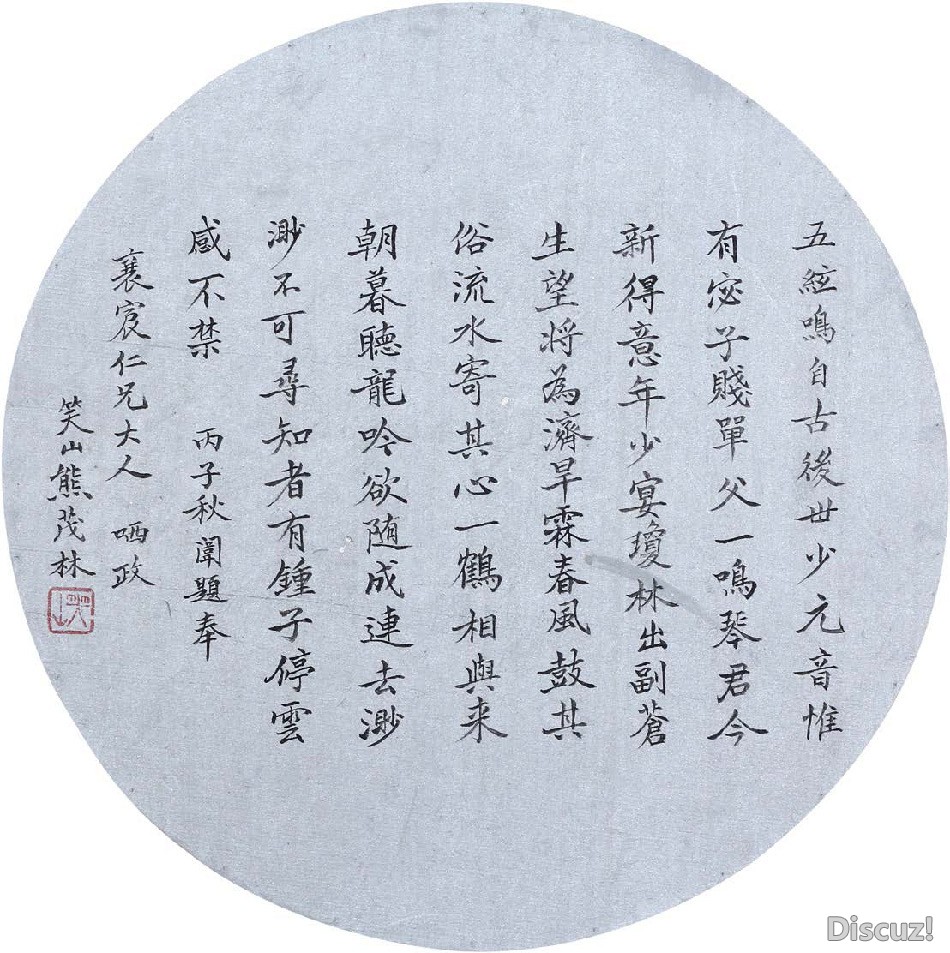 五絃鳴自古後世少元音惟
有宓子賤單父一鳴琴君今
新得意年少宴瓊林出副蒼
生望将為濟旱霖春風鼓其
俗流水寄其心一鶴相與来
朝暮聽龍吟欲随成連去渺
渺不可尋知者有鍾子停雲
感不禁 丙子秋闈題奉
襄宸仁兄大人 哂政
笑山熊茂林
Discuz!